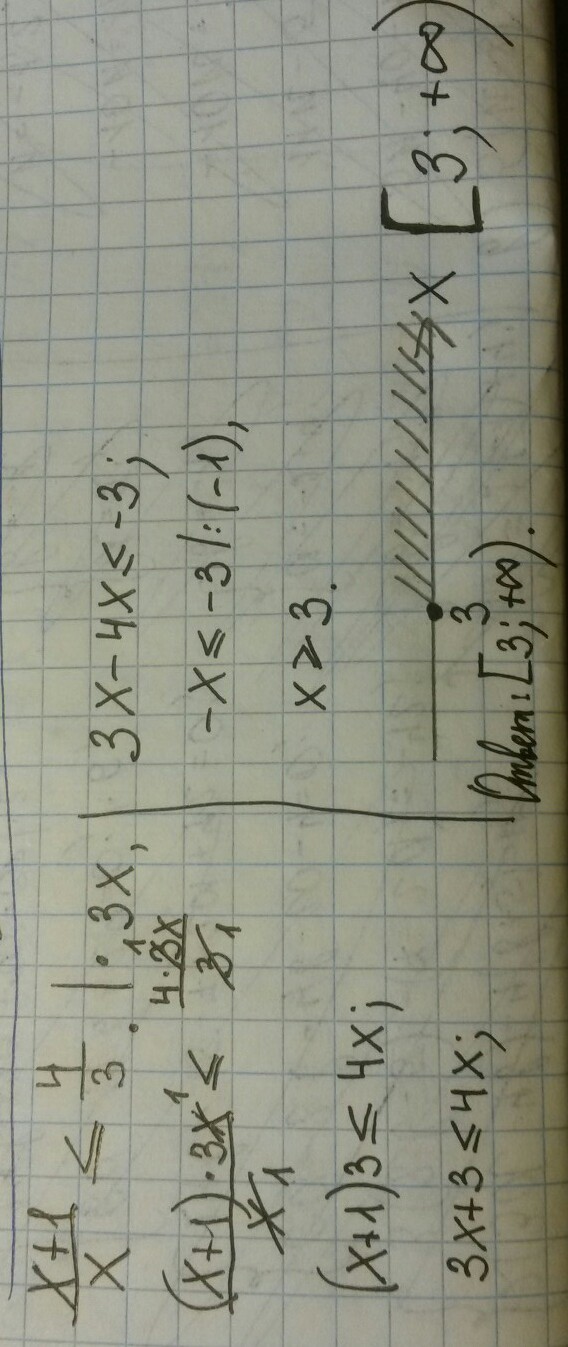 (x+1)/x ≤ 4/3 . | · 3x,
(x+1)·3x ¹/x 1 ≤ 4·3x ¹/3 1
(x+1)3 ≤ 4x;
3x+3 ≤ 4x;
3x-4x ≤ -3;
-x ≤ -3 |:(-1),
x ≥ 3.
3 x [3; +∞)
Ответ: [3; +∞).